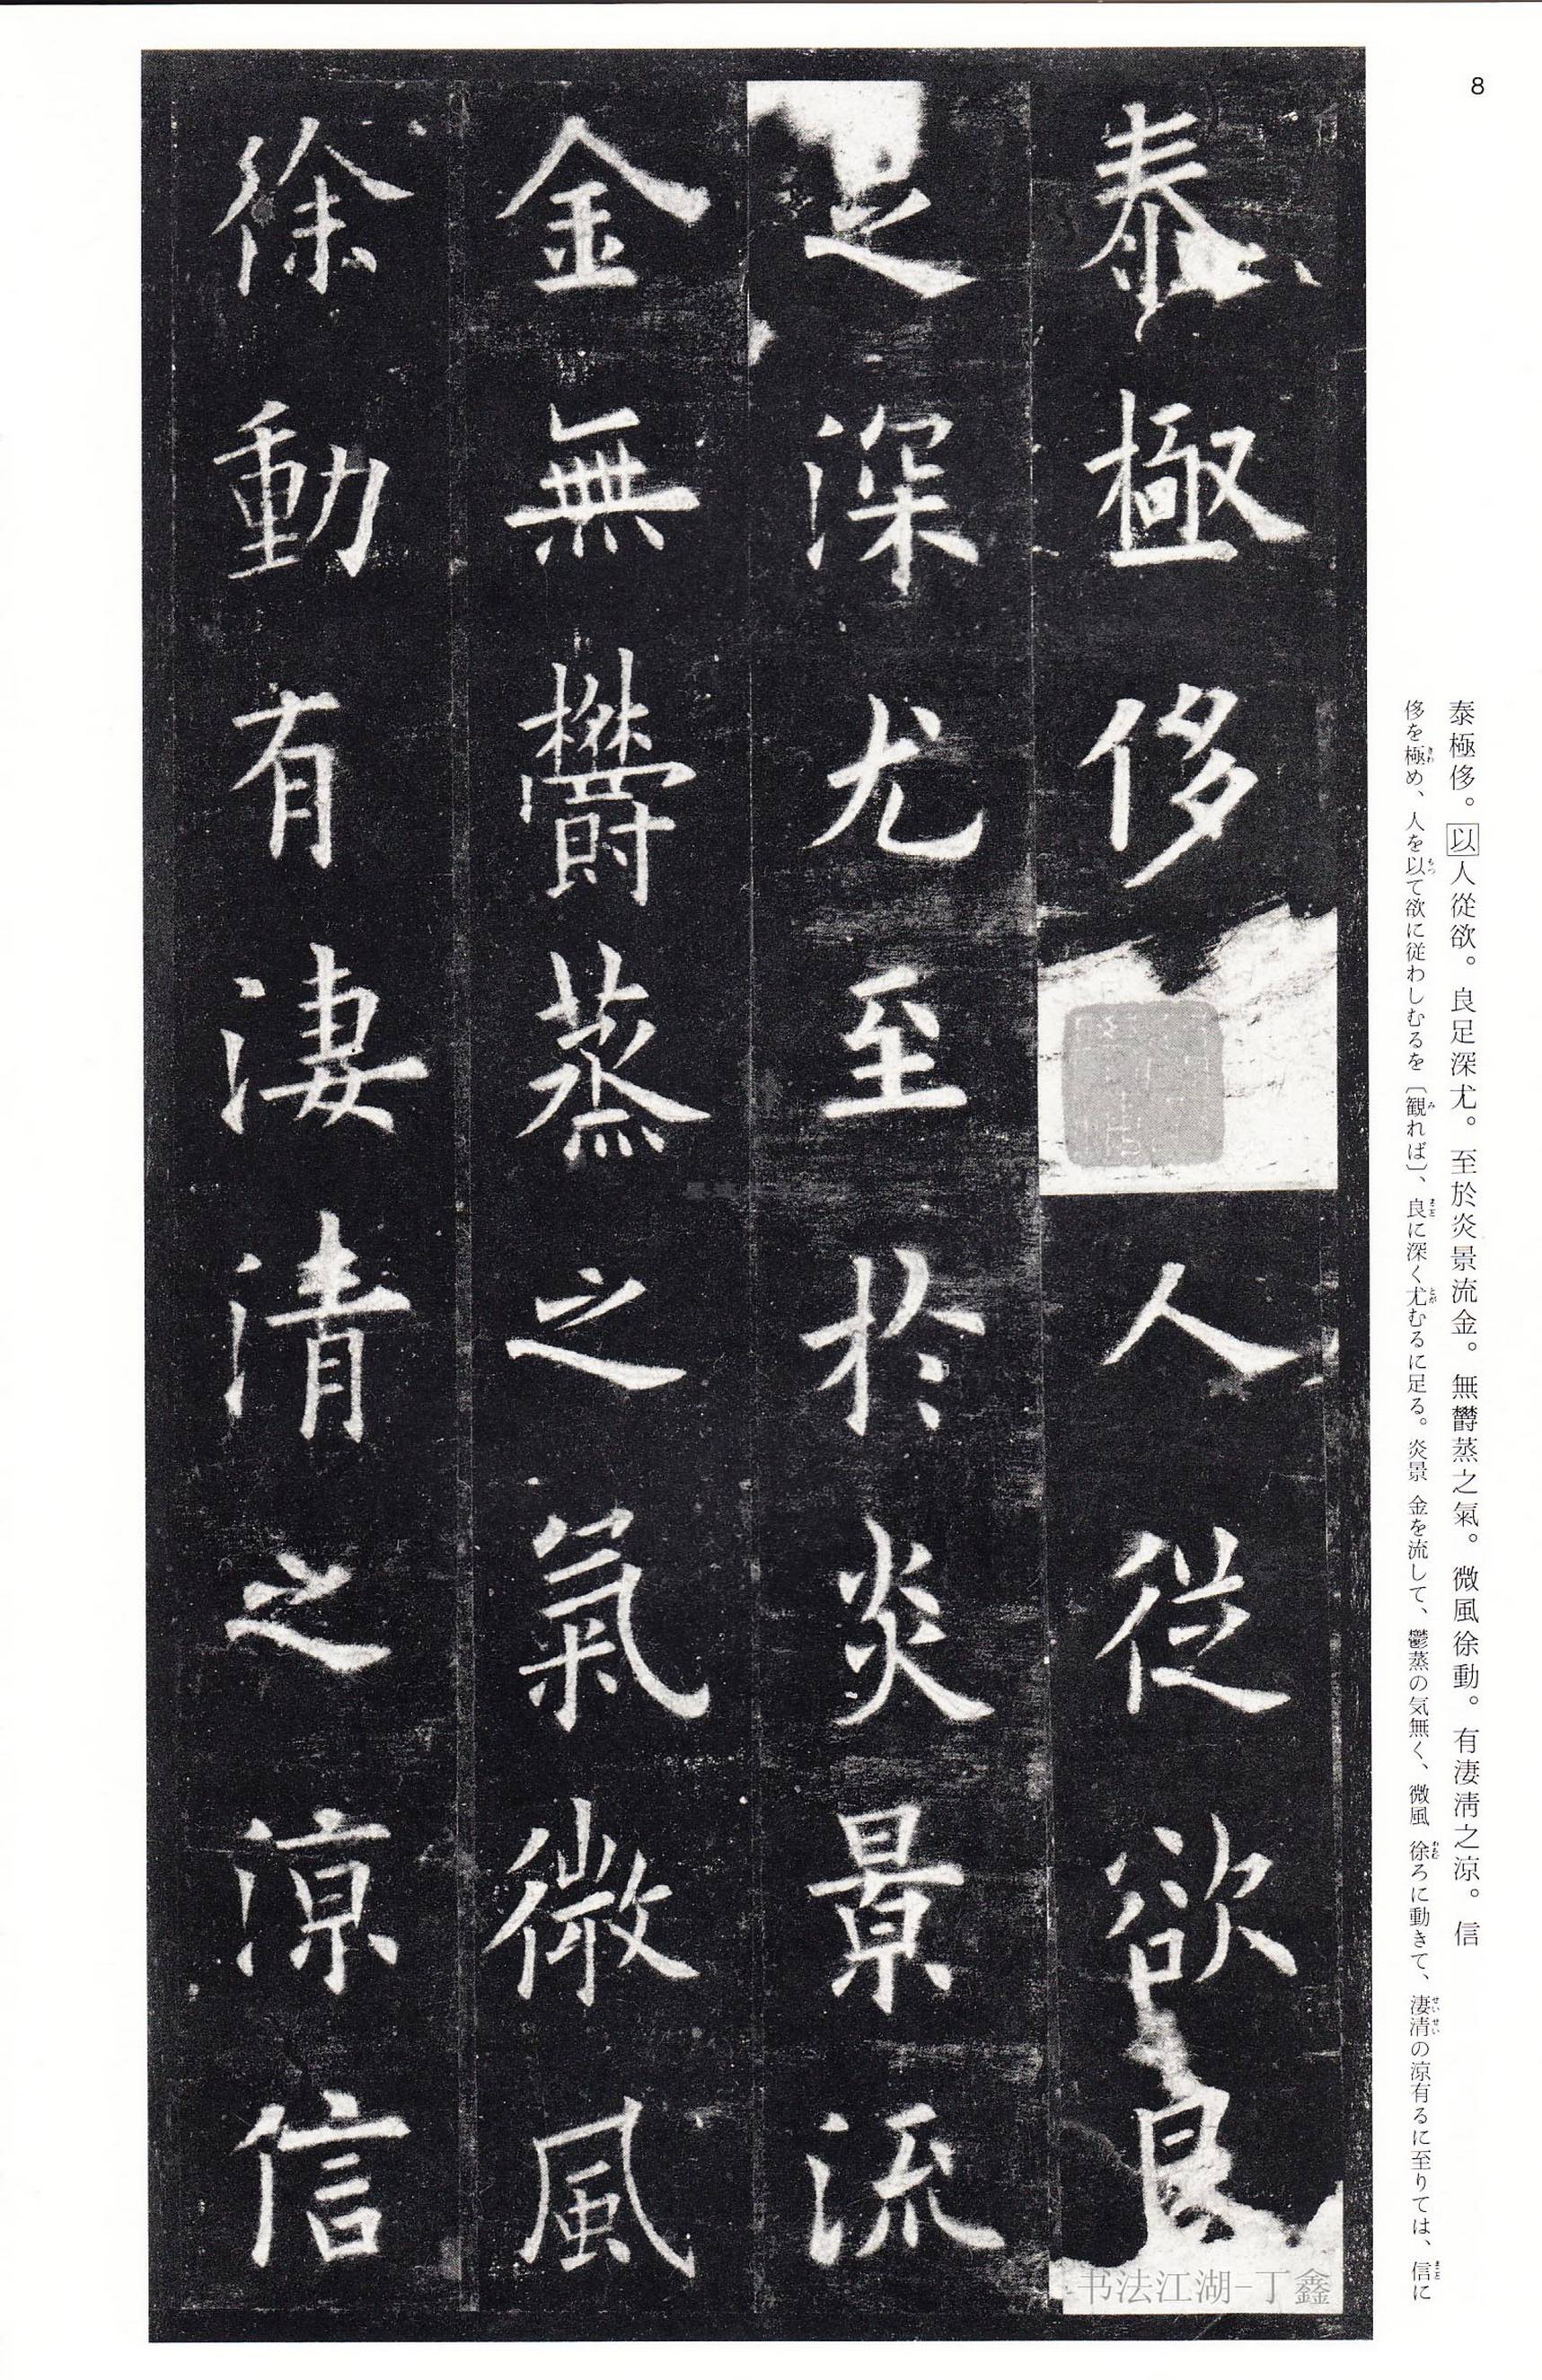 8
泰極侈。以人從欲。良足深尤。至於炎景流金。無欝蒸之氣。微風徐動。有淒淸之涼。信
侈を極め、人を以て欲に従わしむるを〔観れば〕、良に深く尤むるに足る。炎景 金を流して、鬱蒸の気無く、微風 徐ろに動きて、淒清の涼有るに至りては、信に
泰極侈人從欲良
足深尤至於炎景流
金無欝蒸之氣微風
徐動有淒清之涼信
书法江湖-丁鑫